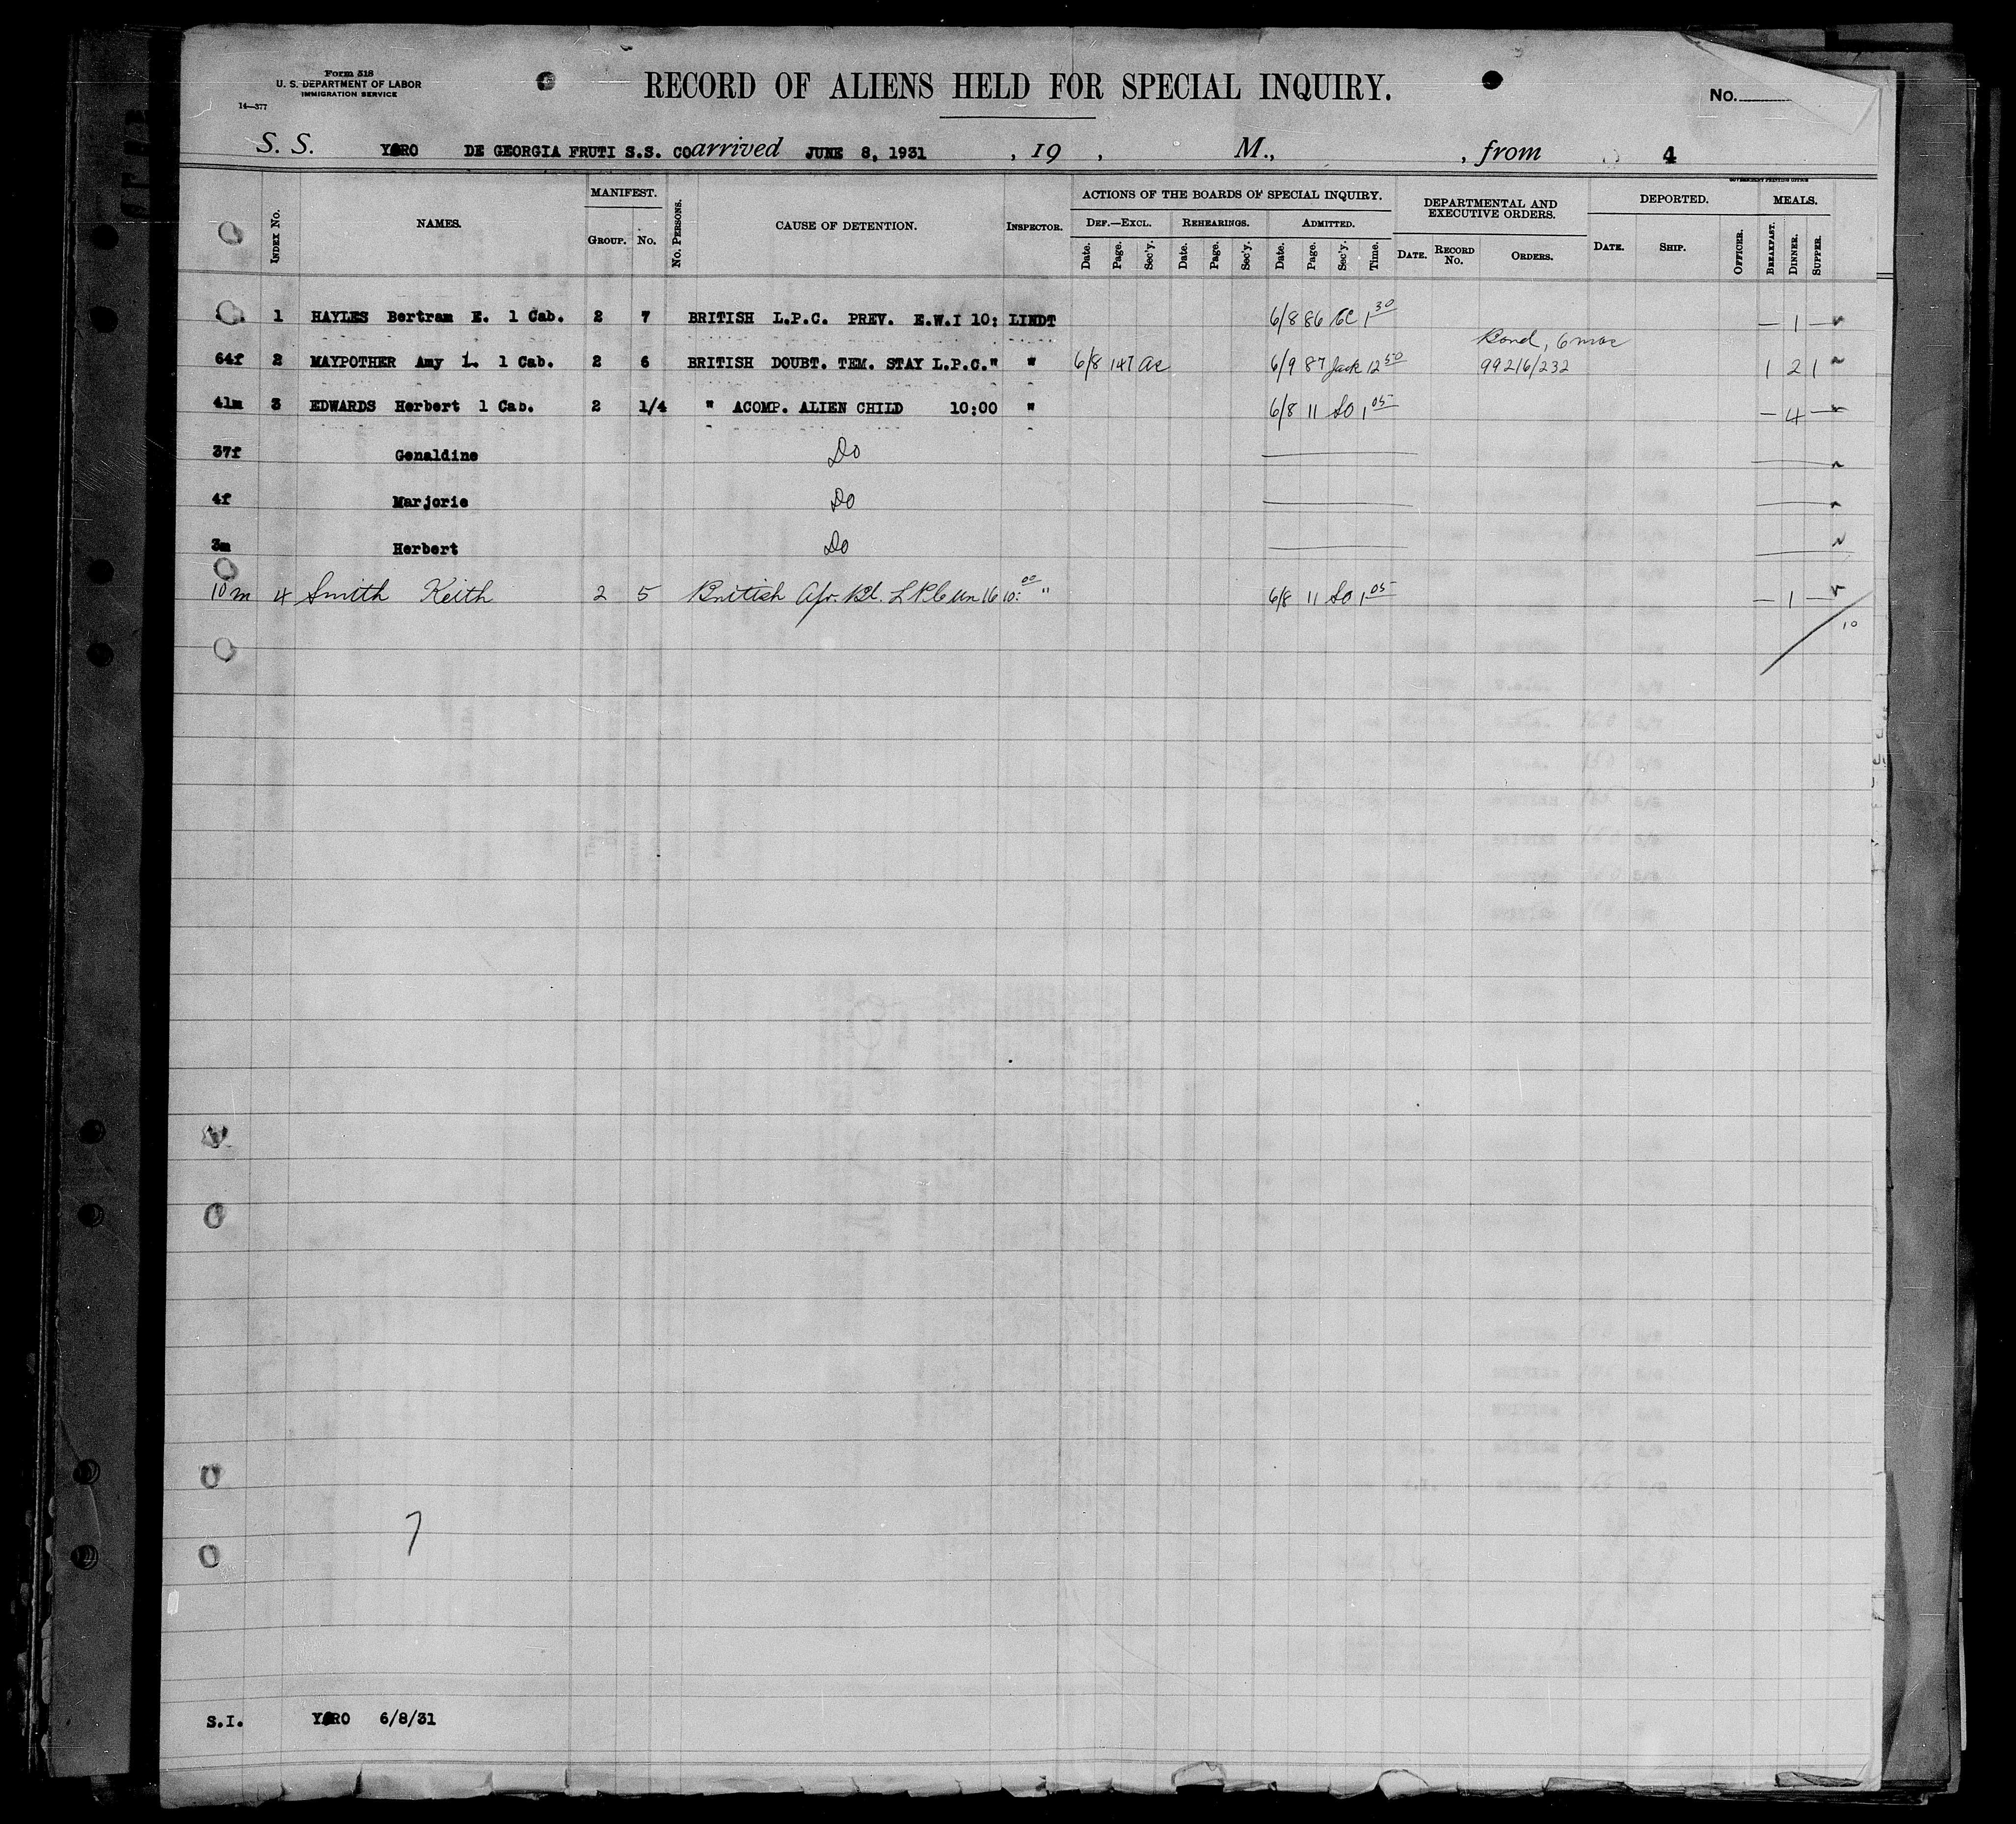 Form 518
U. S. DEPARTMENT OF LABOR
IMMIGRATION SERVICE
14—377
RECORD OF ALIENS HELD FOR SPECIAL INQUIRY.
No.
S. S. YORO DE GEORGIA FRUTI S.S. CO arrived JUNE 8, 1931 , 19 , M., , from 4
GOVERNMENT PRINTING OFFICE
INDEX No. NAMES. MANIFEST. GROUP. No. No. PERSONS. CAUSE OF DETENTION. INSPECTOR. ACTIONS OF THE BOARDS OF SPECIAL INQUIRY. DEPARTMENTAL AND EXECUTIVE ORDERS. DEPORTED. MEALS.
DEF.—EXCL. REHEARINGS. ADMITTED.
Date. Page. Sec'y. Date. Page. Sec'y. Date. Page. Sec'y. Time. DATE. RECORD No. ORDERS. DATE. SHIP. OFFICER. BREAKFAST. DINNER. SUPPER.
1 HAYLES Bertram E. 1 Cab. 2 7 BRITISH L.P.C. PREV. E.W.I 10: LINDT 6/8 86 1 30 — 1 —
Bond, 6 mos
64f 2 MAYPOTHER Amy L. 1 Cab. 2 6 BRITISH DOUBT. TEM. STAY L.P.C." " 6/8 147 Ac 6/9 87 Jack 12 50 99216/232 1 2 1
41m 3 EDWARDS Herbert 1 Cab. 2 1/4 " ACOMP. ALIEN CHILD 10:00 " 6/8 11 SO 1 05 — 4 —
37f Genaldine Do
4f Marjorie Do
3m Herbert Do
10m 4 Smith Keith 2 5 British Afr. Bl. L P C un 16 10: 00 " 6/8 11 SO 1 05 — 1 —
10
7
S.I. YORO 6/8/31